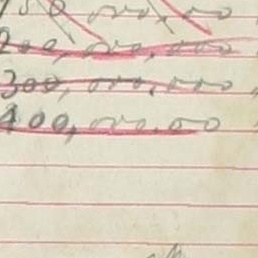 150,000,000
200,000,000
300,000.000
400,000.00